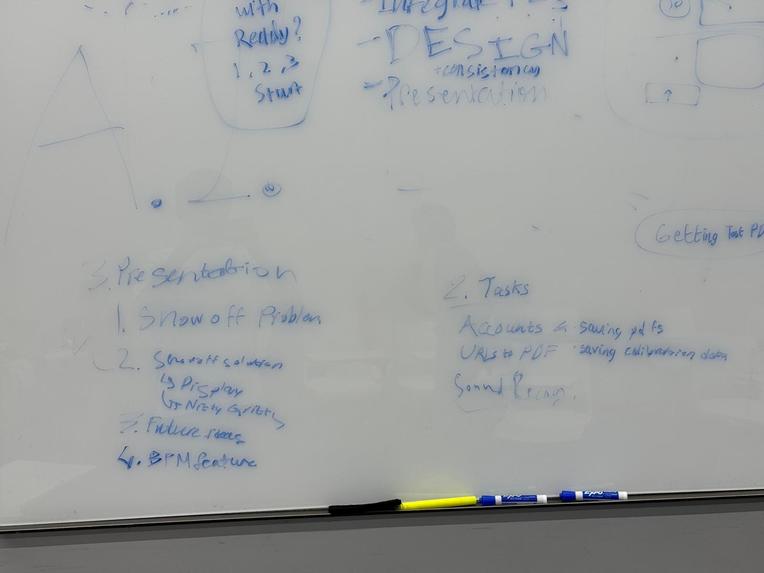 with
Ready?
1, 2, 3
Start
- DESIGN
+consistency
- Presentation
Getting Test
3. Presentation
1. Show off Problem
2. Show off solution
↳ Display
↳ Nitty Gritty
3. Future ideas
4. BPM feature
2. Tasks
Accounts & saving pdfs
URLs to PDF saving calibration data
Sound
EXPO
EXPO